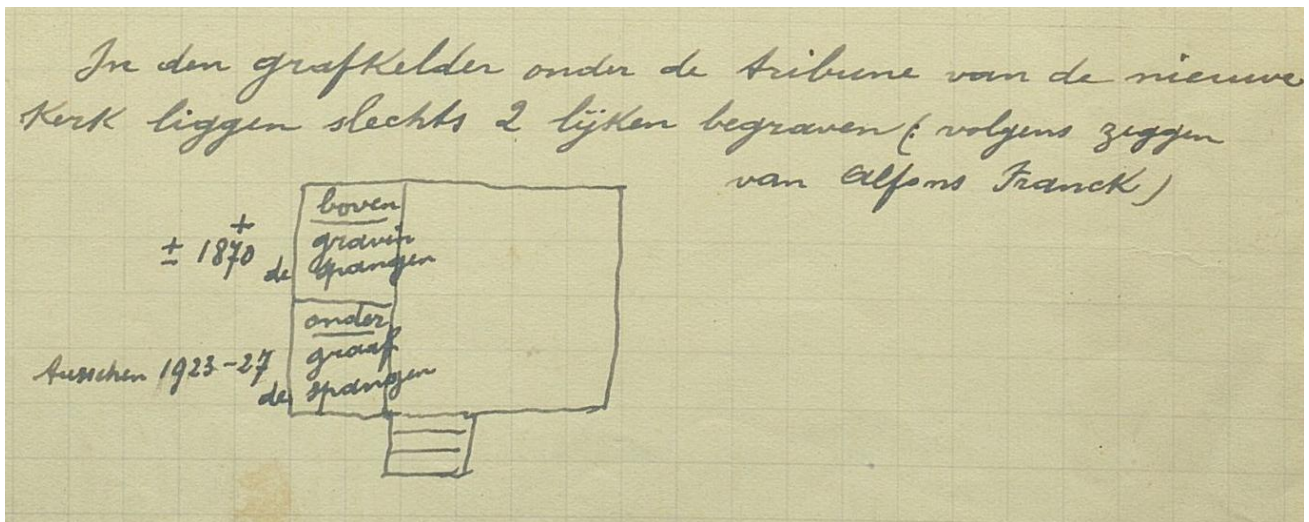 In den grafkelder onder de tribune van de nieuwe
Kerk liggen slechts 2 lijken begraven (: volgens zeggen
van Alfons Franck)
boven
gravin
de Spangen
+
± 1870
onder
graaf
de Spangen
tusschen 1923-27